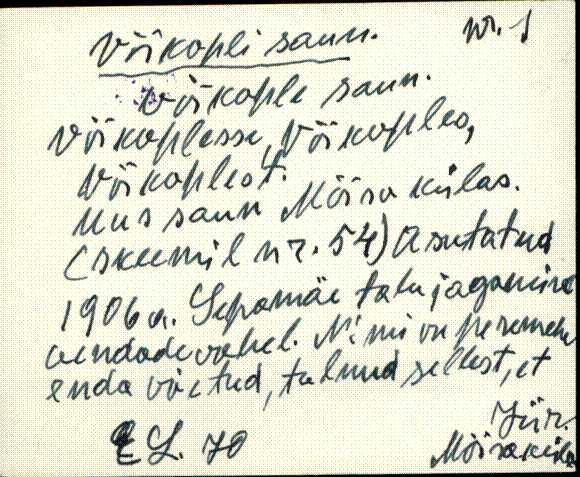 Võikopli saun.
nr. 1
Võikople saun.
Võikoplesse, Võikoples,
Võikoplest.
Uus saun Mõisa külas.
(skeemil nr. 54) Asutatud
1906 a. Sepamäe talu jagamine
vendade vahel. Nimi on peremehe
enda võetud, tulnud sellest, et
Jür.
ES. 70
Mõisaküla